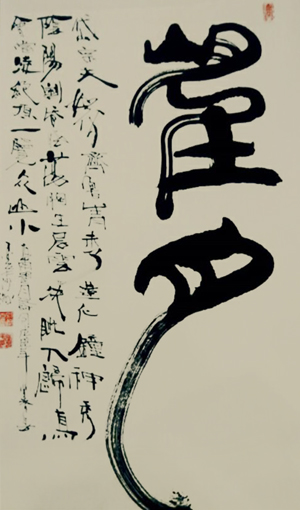 望
岱宗夫如何齊魯青未了造化鍾神秀
陰陽割昏曉蕩胸生層雲決眥入歸鳥
會當凌絕頂一覽众山小